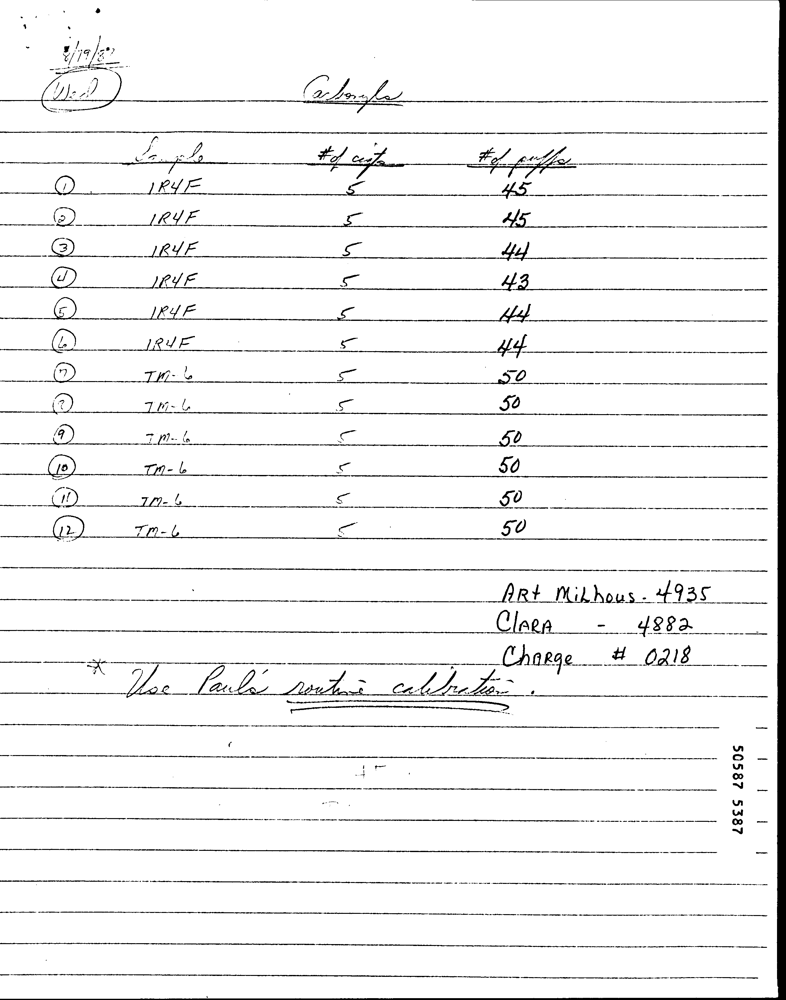 8/19/87
Wed
Carbonyls
Sample # of cigts # of puffs
1 1R4F 5 45
2 1R4F 5 45
3 1R4F 5 44
4 1R4F 5 43
5 1R4F 5 44
6 1R4F 5 44
7 TM-6 5 50
8 TM-6 5 50
9 TM-6 5 50
10 TM-6 5 50
11 TM-6 5 50
12 TM-6 5 50
ARt MiLhous - 4935
ClARA - 4882
ChARge # 0218
* Use Paul's routine calibration.
50587 5387